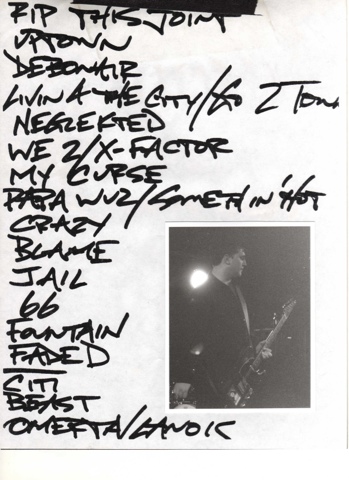 RIP THIS JOINT
UPTOWN
DEBONAIR
LIVIN 4 THE CITY/GO 2 TOWN
NEGLEKTED
WE 2/X-FACTOR
MY CURSE
PAPA WUZ/SOMETHIN' HOT
CRAZY
BLAME
JAIL
66
FOUNTAIN
FADED
CITI
BEAST
OMERTA/LANOIS